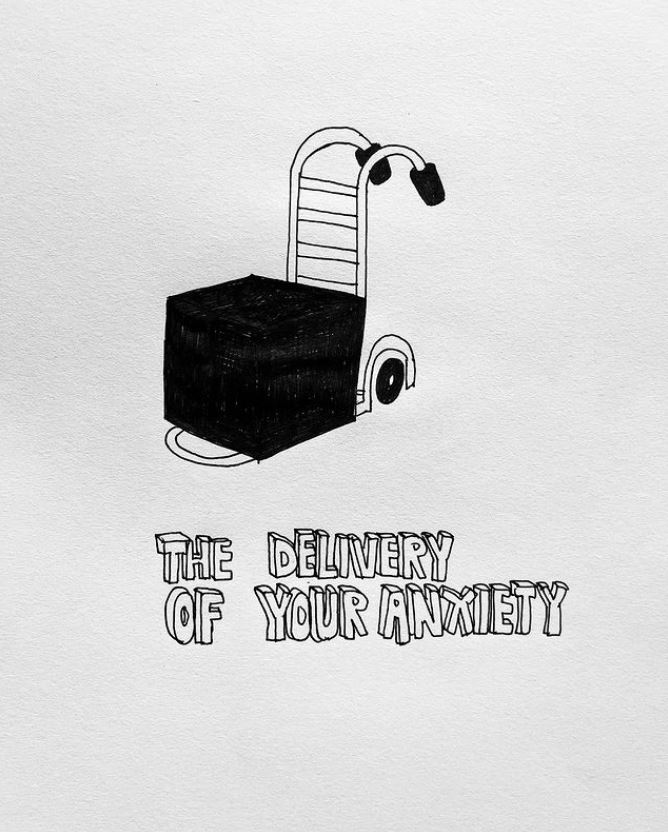 THE DELIVERY
OF YOUR ANXIETY